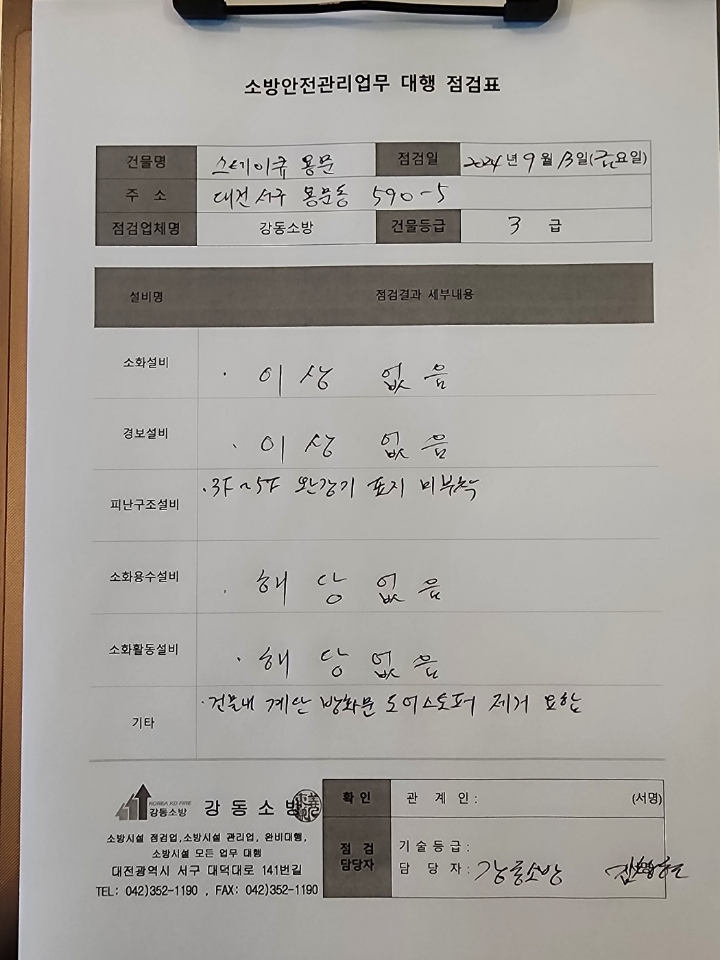 소방안전관리업무 대행 점검표
건물명 스테이큐 용문 점검일 2024년 9월 13일(금요일)
주 소 대전 서구 용문동 590-5
점검업체명 강동소방 건물등급 3 급
설비명 점검결과 세부내용
소화설비 · 이상 없음
경보설비 · 이상 없음
피난구조설비 · 3F~5F 완강기 표지 미부착
소화용수설비 · 해당없음
소화활동설비 · 해당없음
기타 · 건물내 계단 방화문 도어스토퍼 제거 요함
KOREA KD FIRE
강동소방 강동소방
소방시설 점검업,소방시설 관리업, 완비대행,
소방시설 모든 업무 대행
대전광역시 서구 대덕대로 141번길
TEL: 042)352-1190 , FAX: 042)352-1190
확 인 관 계 인 : (서명)
점 검
담당자
기술등급 :
담 당 자 : 강동소방